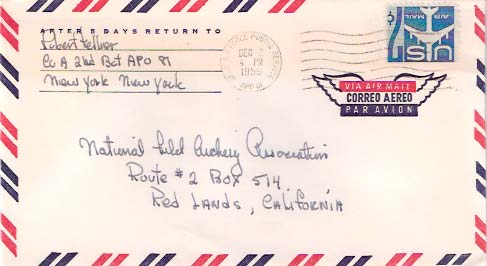 AFTER 5 DAYS RETURN TO
Robert Fellner
Co A 2nd Bat APO 81
New York New York
AIR FORCE POSTAL SERVICE
DEC 2
4 PM
1958
APO 81
AIR MAIL
US
7¢
VIA AIR MAIL
CORREO AEREO
PAR AVION
National Field Archery Association
Route #2 Box 514
Red Lands, California